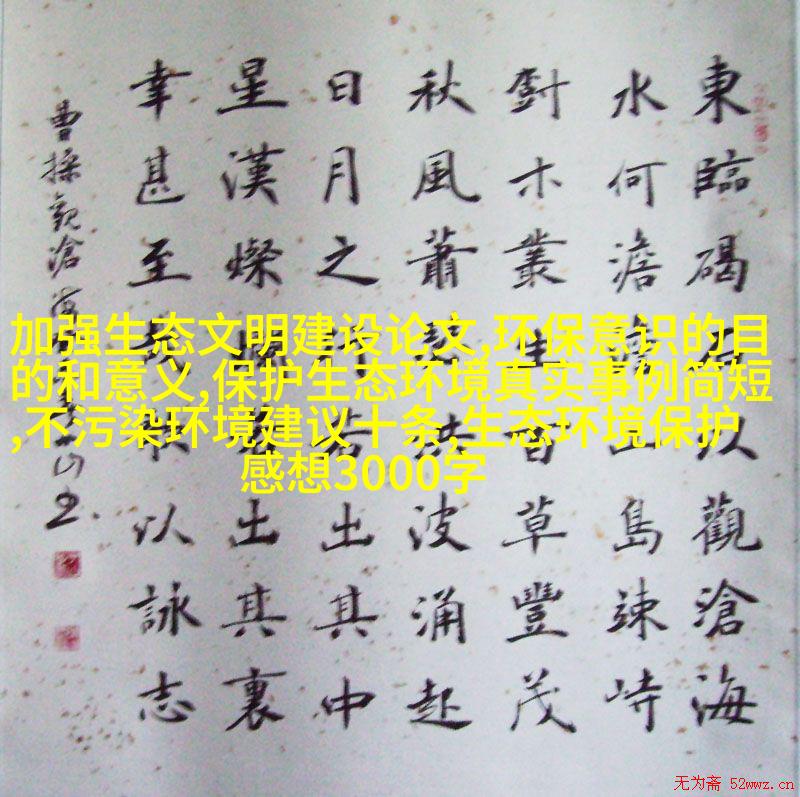 東臨碣石以觀滄海
水何澹澹山島竦峙
木叢生百草豐茂
秋風蕭瑟洪波涌起
日月之行若出其中
星漢燦爛若出其裏
幸甚至哉歌以詠志
曹操觀滄海
山书
加强生态文明建设论文,环保意识的目
的和意义,保护生态环境真实事例简短
,不污染环境建议十条,生态环境保护
感想3000字
无为斋 52wwz.cn